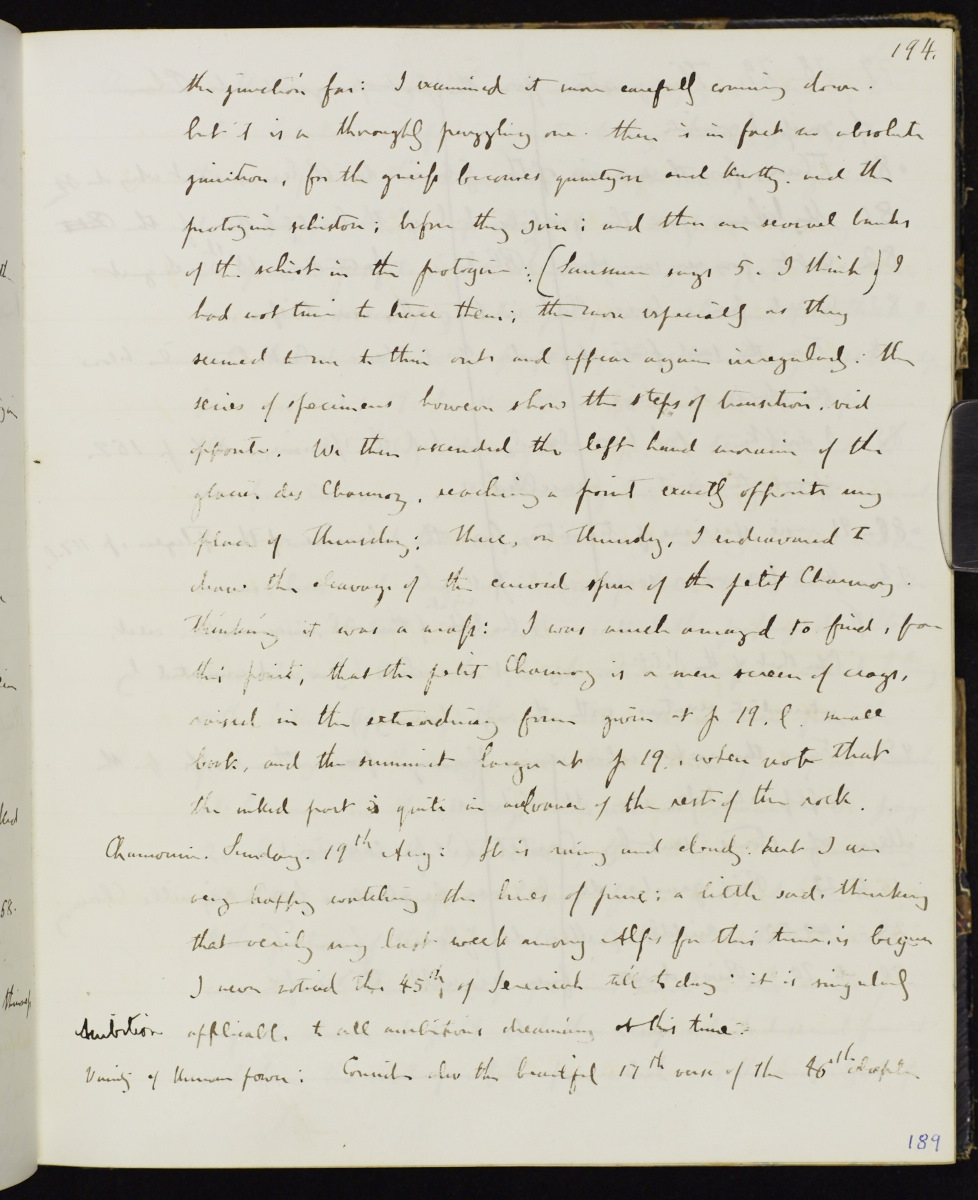 194.
the junction far: I examined it more carefully coming down.
but it is a thoroughly puzzling one. there is in fact no absolute
junction, for the gneiss becomes quartzose and knotty. and the
protogine schistose; before they join; and there are several banks
of the schist in the protogine: (Saussure says 5. I think) I
had not time to trace them; the more especially as they
seemed to me to thin out and appear again irregularly: the
series of specimens however show the steps of transition. vid
opposite. We then ascended the left hand moraine of the
glacier des Charmoz, reaching a point exactly opposite my
place of Thursday; there, on Thursday, I endeavoured to
draw the cleavage of the curved spur of the petit Charmoz.
thinking it was a mass: I was much amazed to find, from
this point, that the petit Charmoz is a mere screen of crags,
raised in the extraordinary form given at p 19. l. small
book, and the summit larger at p 19., where note that
the inked part is quite in advance of the rest of the rock.
Chamouni. Sunday. 19th Aug: It is rainy and cloudy. but I am
very happy watching the lines of pine: a little sad, thinking
that verily my last week among Alps for this time, is begun
I never noticed the 45th of Jeremiah till today: it is singularly
Ambition applicable to all ambitious dreaming at this time:
Vanity of human power: Consider also the beautiful 17th verse of the 46th chapter
189